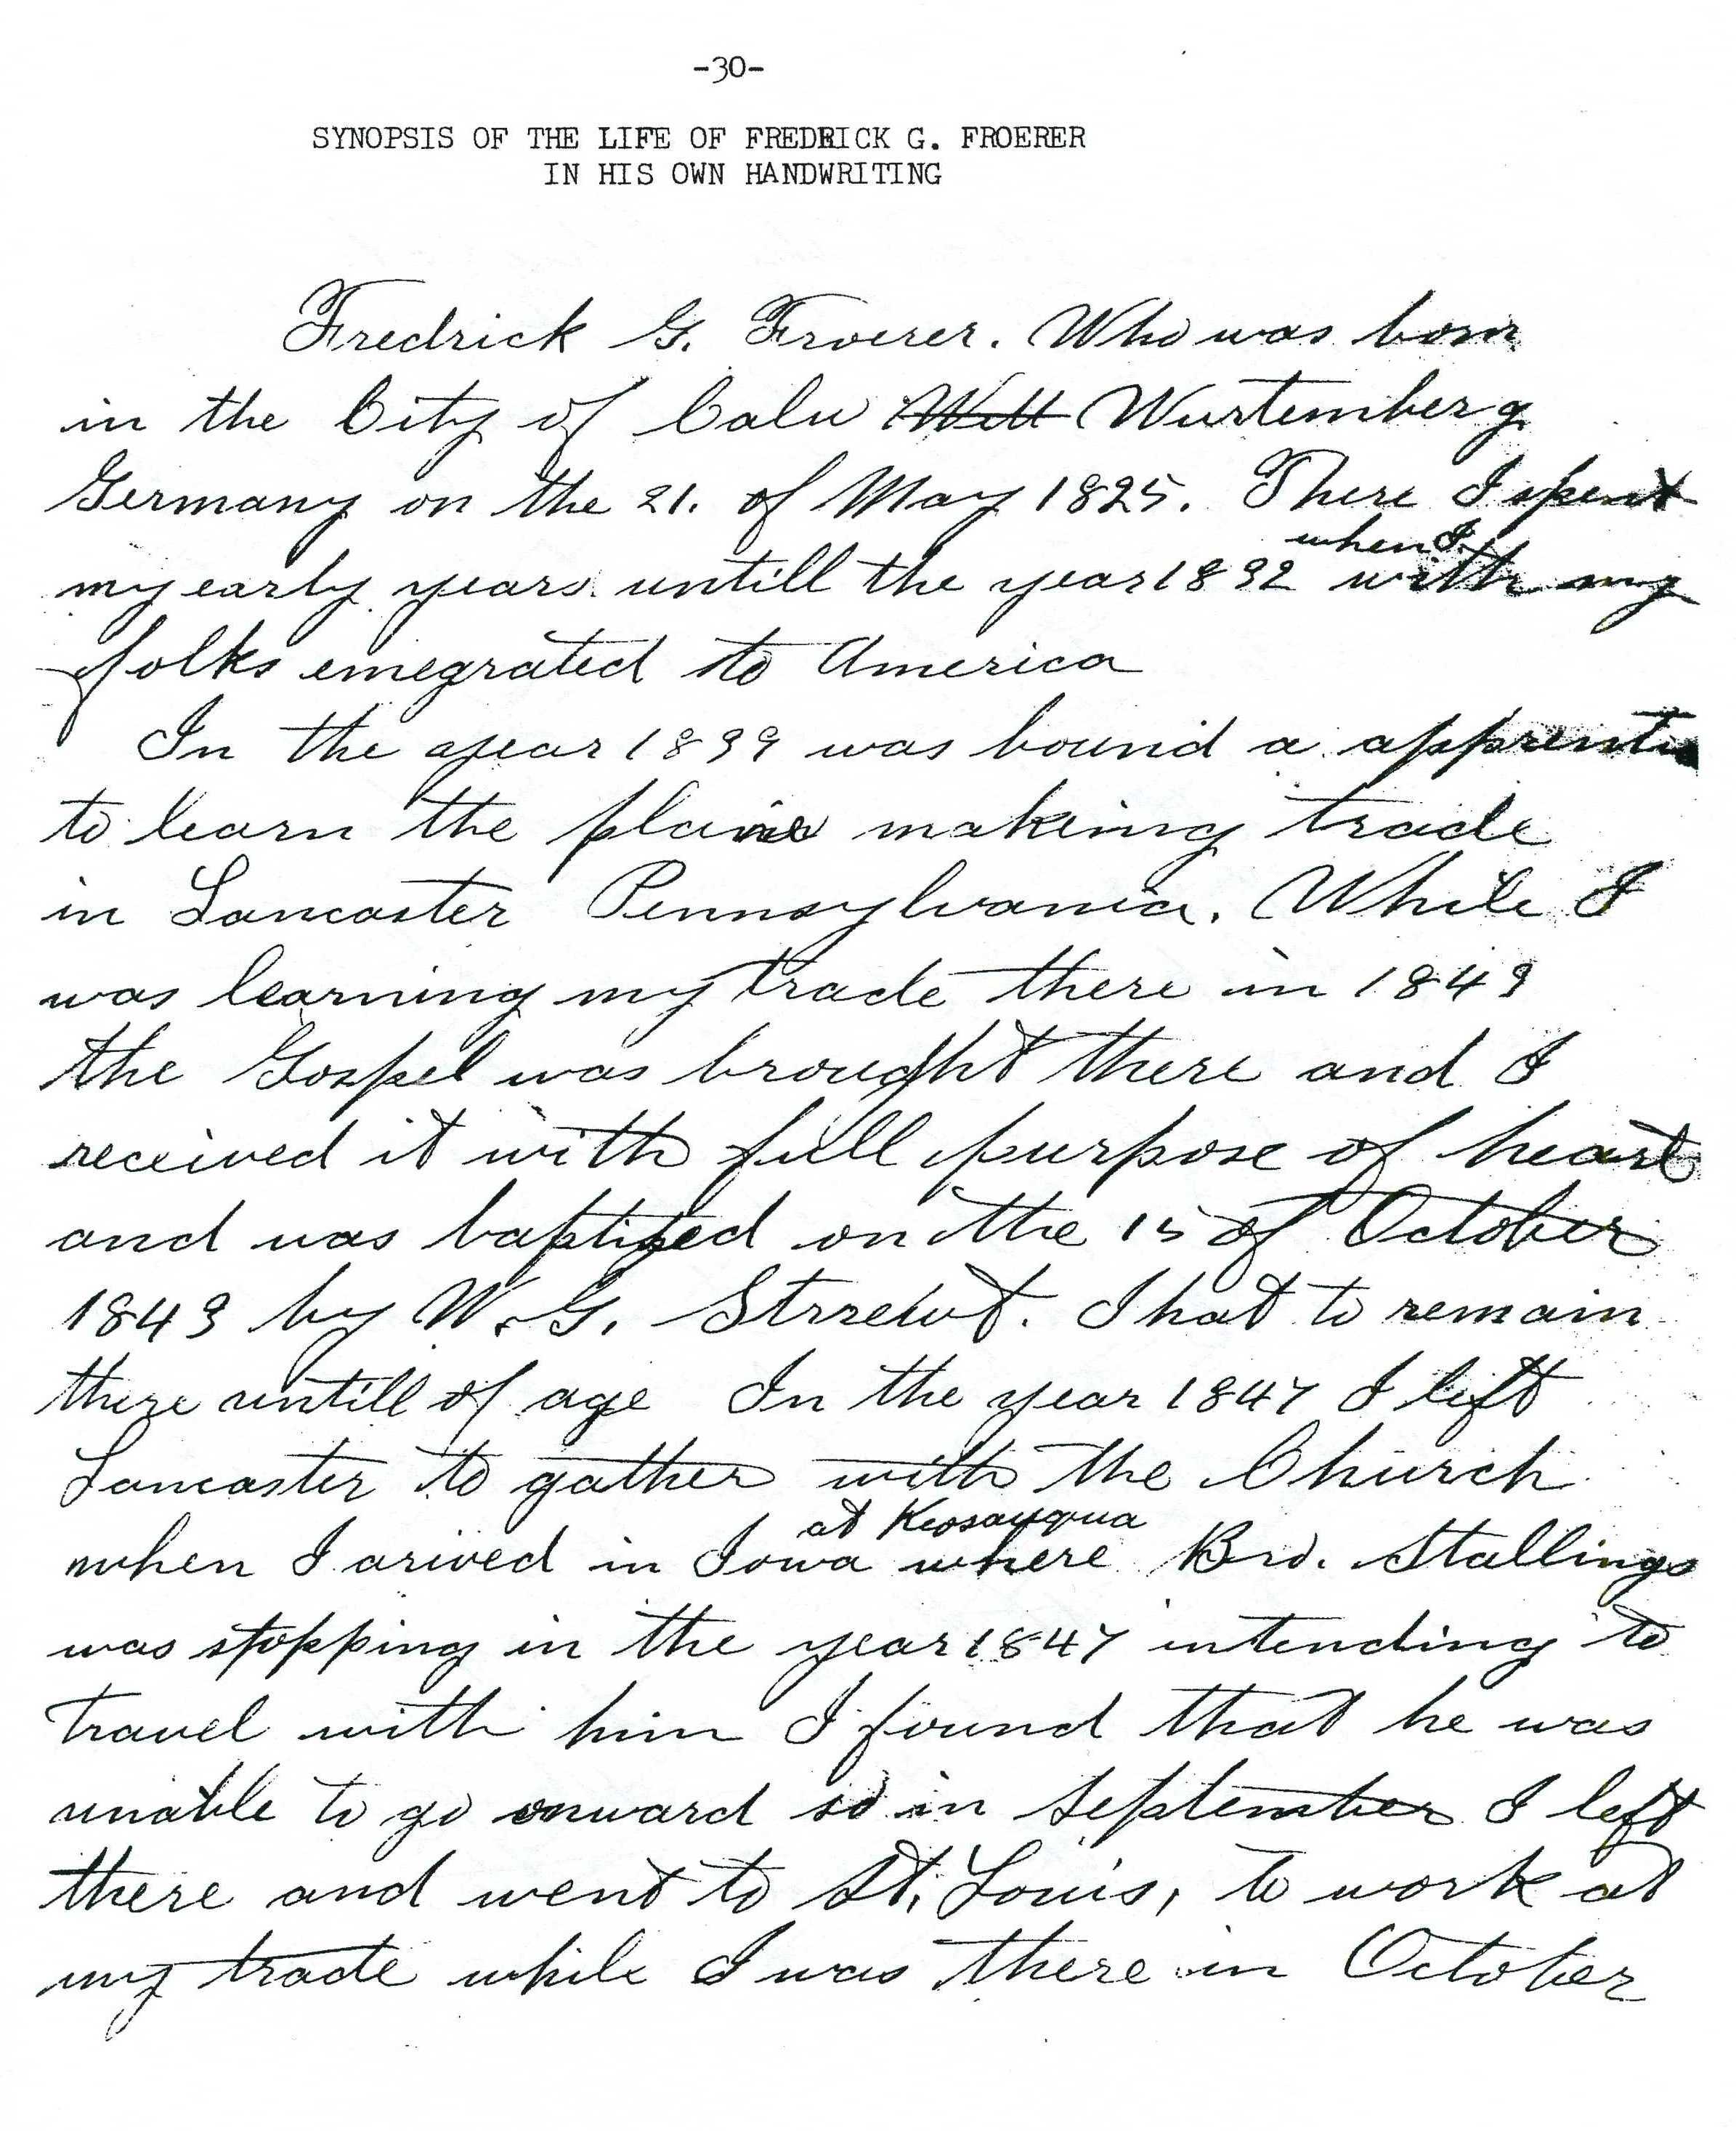 -30-
SYNOPSIS OF THE LIFE OF FREDRICK G. FROERER
IN HIS OWN HANDWRITING
Fredrick G. Froerer. Who was born
in the City of Calw Wurtemberg
Germany on the 21. of May 1825. There I spent
when I
my early years untill the year 1832 with my
folks emegrated to America
In the year 1839 was bound a apprentic
to learn the plaine making trade
in Lancaster Pennsylvania. While I
was learning my trade there in 1843
the Gospel was brought there and I
received it with full purpose of heart
and was baptized on the 15 of October
1843 by W. G. I hat to remain
there untill of age In the year 1847 I left
Lancaster to gather with the Church
at Keosauqua
when I arived in Iowa where Bro. Stallings
was stopping in the year 1847 intending to
travel with him I found that he was
unable to go onward so in September I left
there and went to St. Louis, to work at
my trade while I was there in October